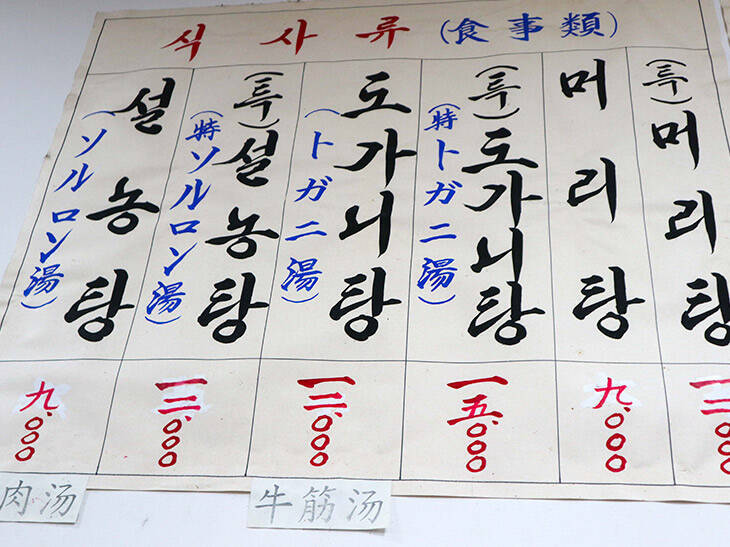 식사류(食事類)
설농탕
(ソルロン湯)
九,000
(특)설농탕
(特ソルロン湯)
一二,000
도가니탕
(トガニ湯)
一二,000
(특)도가니탕
(特トガニ湯)
一五,000
머리탕
九,000
(특)머리탕
一二,000
肉汤
牛筋汤